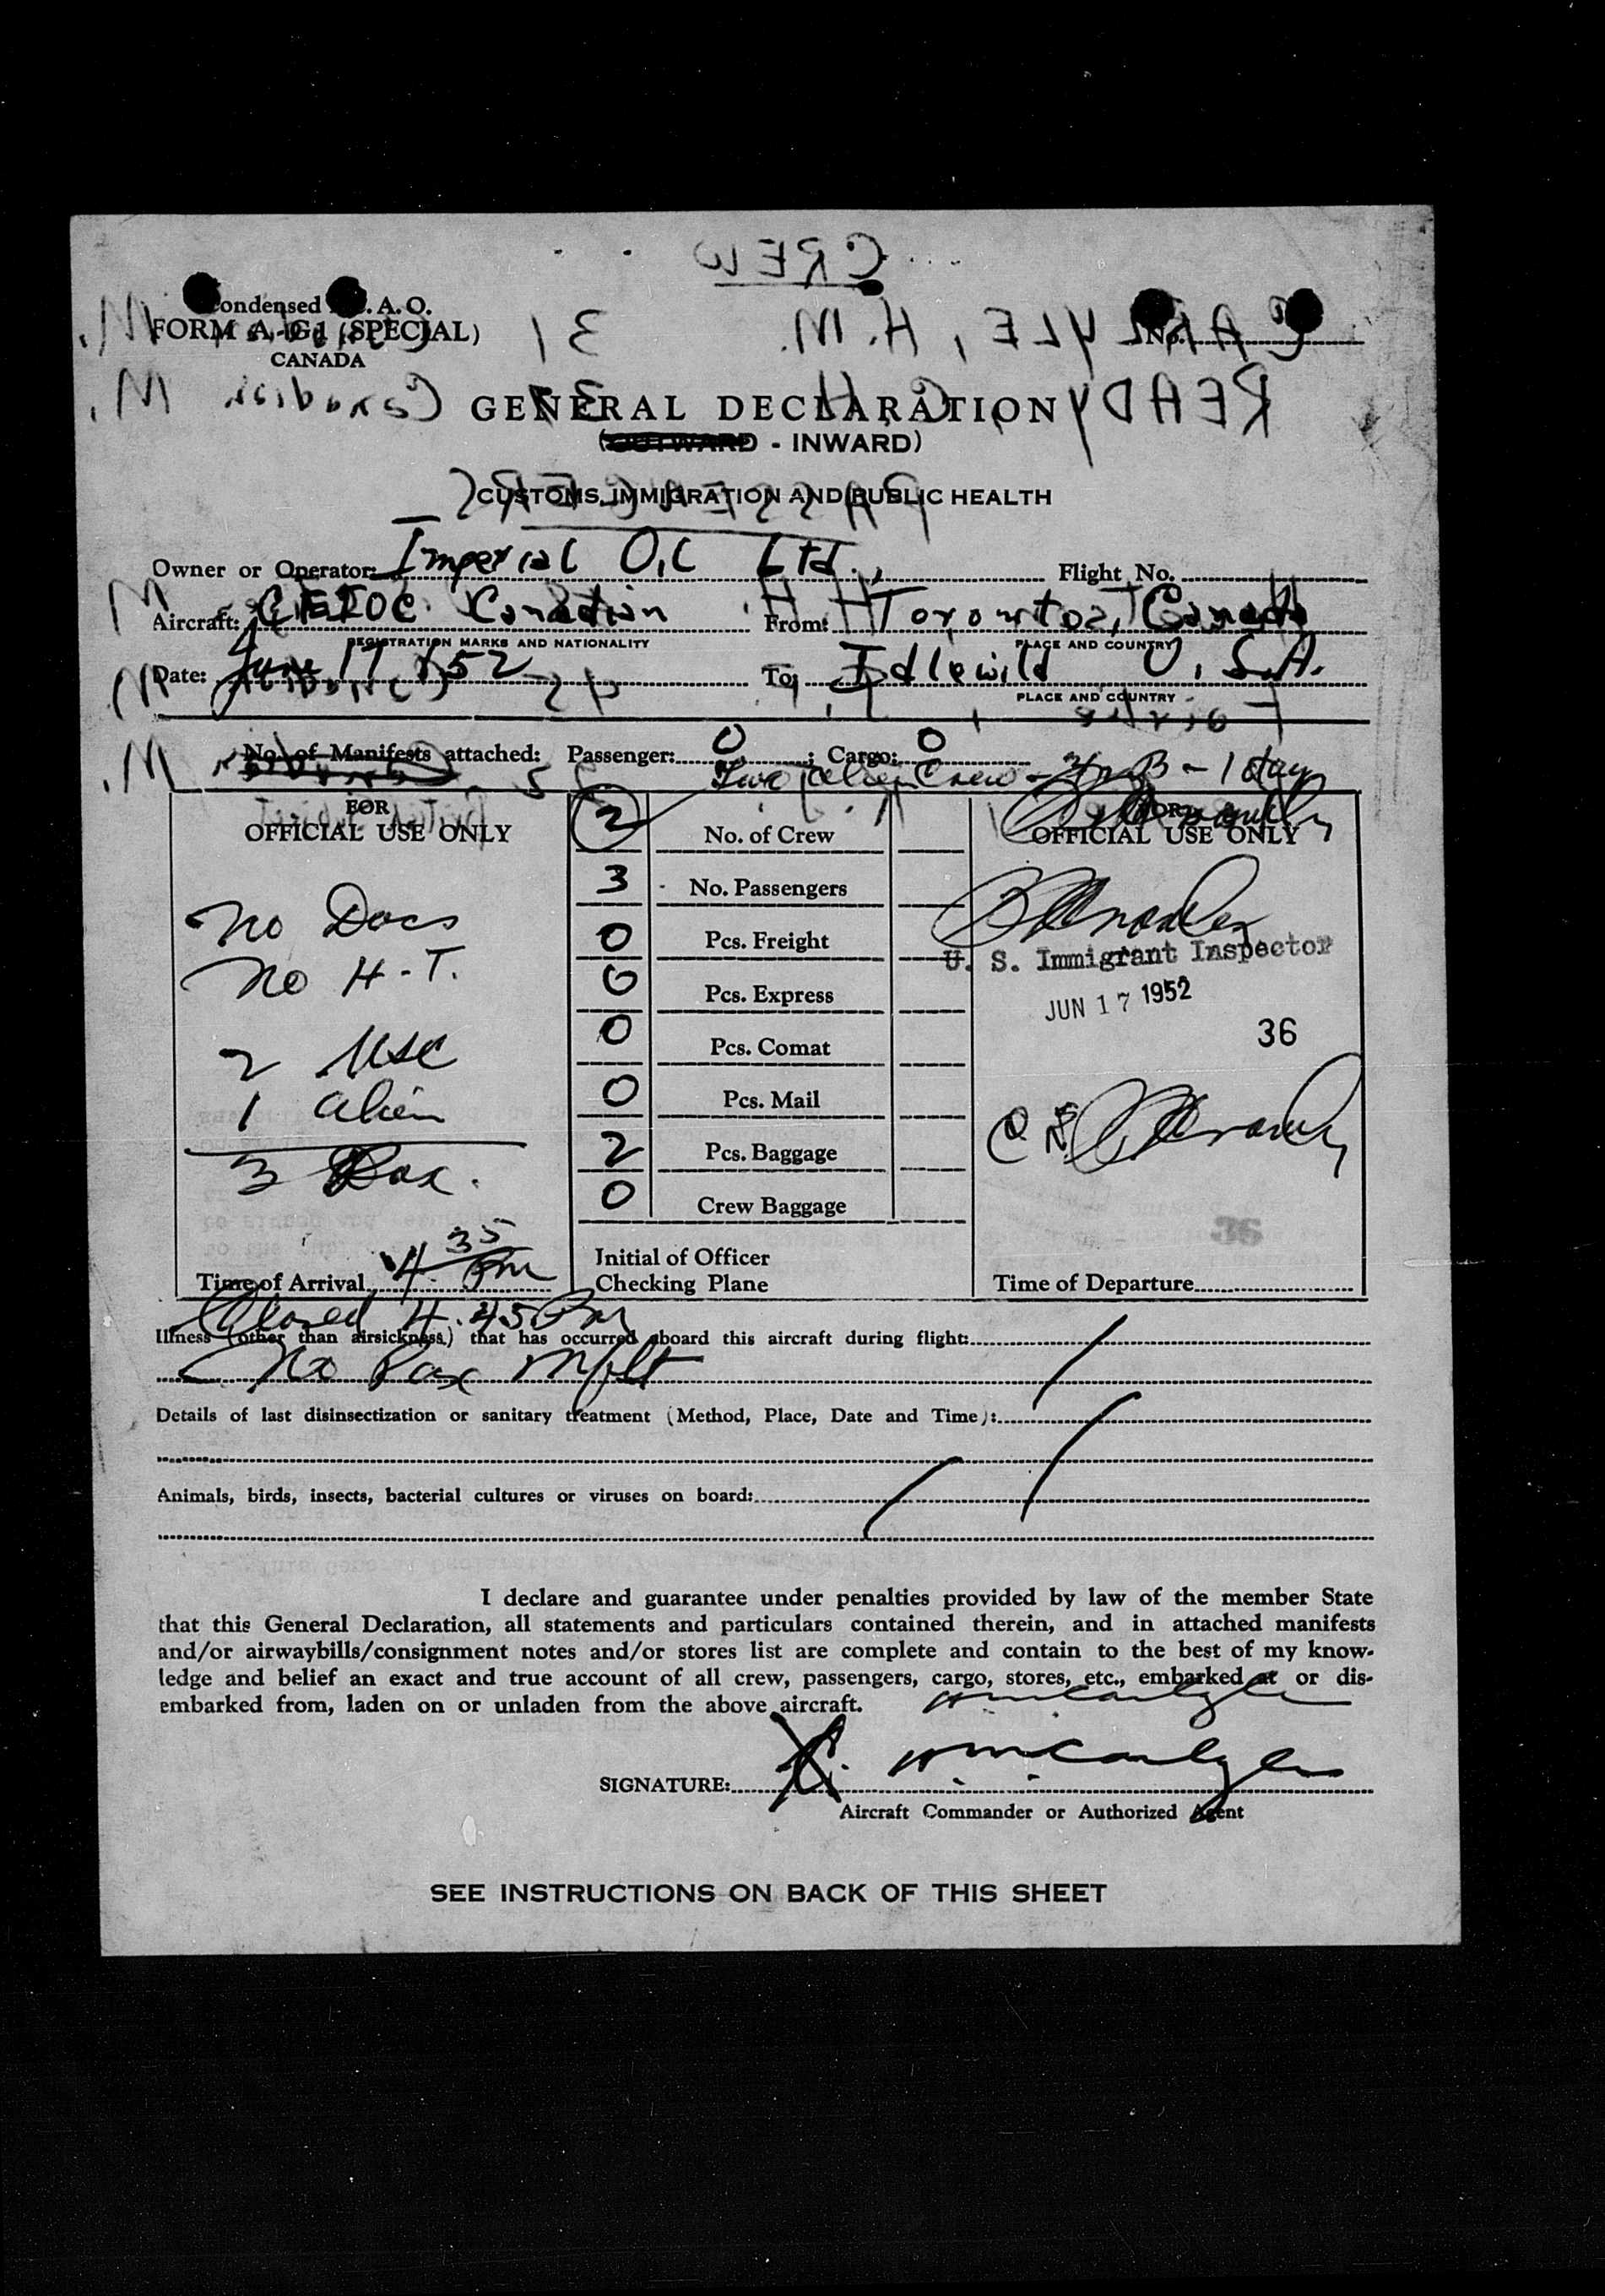 CREW
Condensed I.C.A.O.
FORM A-G1 (SPECIAL)
CANADA
No.
CARLYLE, H. M. 31 Canadian M.
READY, C. H. Canadian M.
GENERAL DECLARATION
(OUTWARD - INWARD)
CUSTOMS, IMMIGRATION AND PUBLIC HEALTH
PASSENGERS
Owner or Operator: Imperial Oil Ltd., Flight No.
Aircraft: CFIOC Canadian From: Toronto, Canada
REGISTRATION MARKS AND NATIONALITY PLACE AND COUNTRY
Date: June 17 /52 To: Idlewild U.S.A.
PLACE AND COUNTRY
No. of Manifests attached: Passenger: 0 ; Cargo: 0
Two Alien Crew - 1 day
FOR
OFFICIAL USE ONLY
2 No. of Crew
FOR
OFFICIAL USE ONLY
3 No. Passengers
No Docs
0 Pcs. Freight
U. S. Immigrant Inspector
No H-T.
0 Pcs. Express
JUN 17 1952
36
0 Pcs. Comat
2 USC
1 alien
0 Pcs. Mail
2 Pcs. Baggage
3 Pax.
0 Crew Baggage
Time of Arrival 4 35 Pm
Initial of Officer
Checking Plane
Time of Departure
Closed 4.45 Pm
Illness (other than airsickness) that has occurred aboard this aircraft during flight:
No Pax Mfst
Details of last disinsectization or sanitary treatment (Method, Place, Date and Time):
Animals, birds, insects, bacterial cultures or viruses on board:
I declare and guarantee under penalties provided by law of the member State
that this General Declaration, all statements and particulars contained therein, and in attached manifests
and/or airwaybills/consignment notes and/or stores list are complete and contain to the best of my know-
ledge and belief an exact and true account of all crew, passengers, cargo, stores, etc., embarked at or dis-
embarked from, laden on or unladen from the above aircraft.
H M Carlyle
SIGNATURE: X H. M. Carlyle
Aircraft Commander or Authorized Agent
SEE INSTRUCTIONS ON BACK OF THIS SHEET